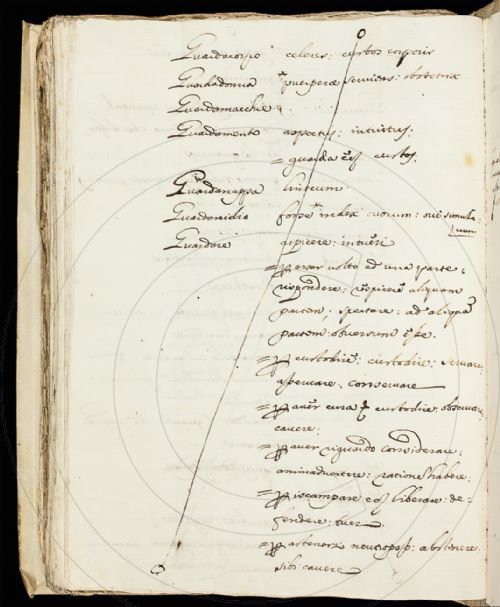 Guardacorpo celeres: custos corporis
Guardadonna puerperæ serviens: obstetrix
Guardamacchie
Guardamento aspectus: intuitus:
= guardia custos.
Guardanappa linteum
Guardanidio index ovorum: ovi simula-
crum
Guardare aspicere: intueri
= per aver volto ad una parte:
rispondere: respicere aliquam
partem; spectare: ad aliquã
partem obversum esse.
= per custodire: custodire: servare
asservare: conservare
= per aver cura custodire: observare
cavere:
= per aver riguardo considerare:
animadvertere: rationẽ habere:
= per iscampare liberare: de-
fendere: tueri
= per astenersi abstinere
sibi cavere